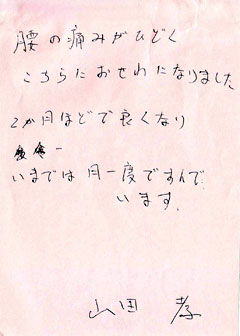 腰の痛みがひどく
こちらにおせわになりました
2か月ほどで良くなり
いまでは月一度ですんで
います。
山田 孝